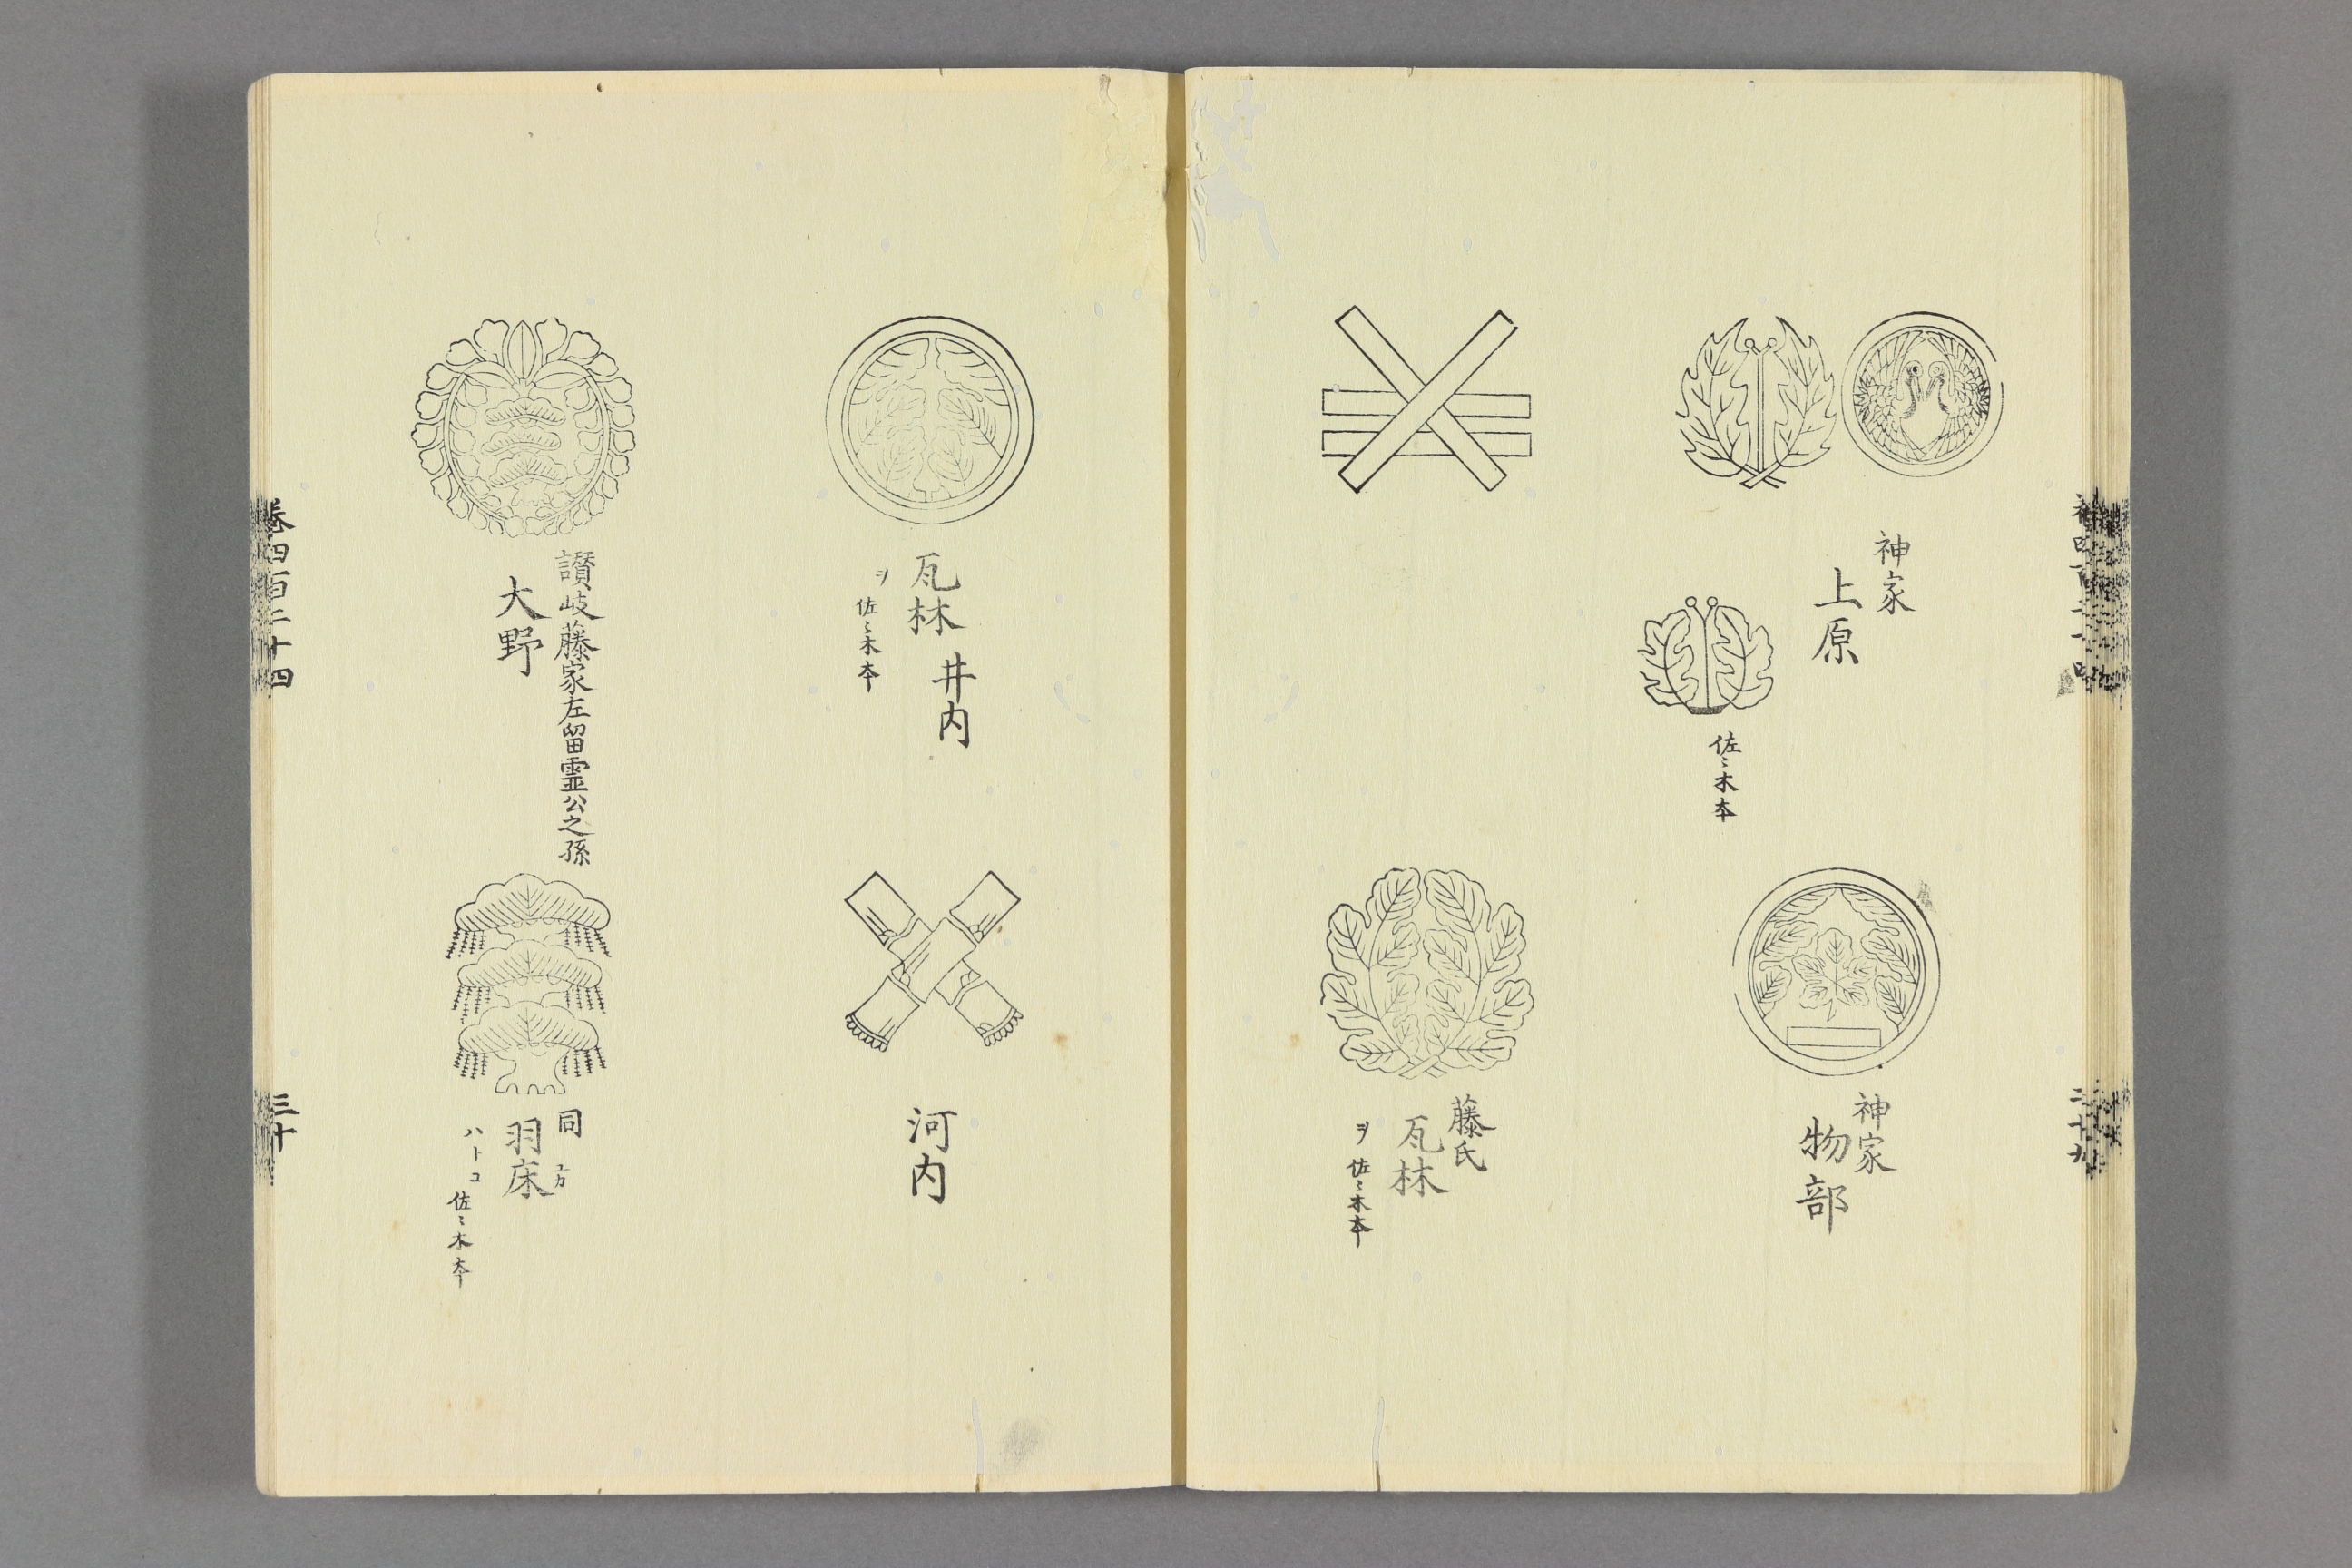 神家
上原
佐〻木本
神家
物部
藤氏
瓦林
ヲ 佐〻木本
井内
瓦林
ヲ 佐〻木本
河内
讃岐藤家左留霊公之孫
大野
同
羽床
ハトコ 佐〻木本
巻四百二十四
三十